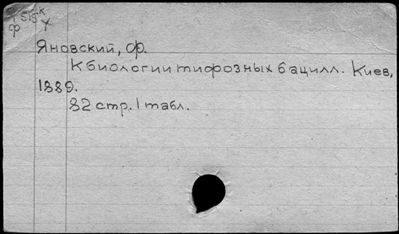 Яновский, Ф.
К биологии тифозных бацилл. Киев,
1889.
82 стр. 1 табл.